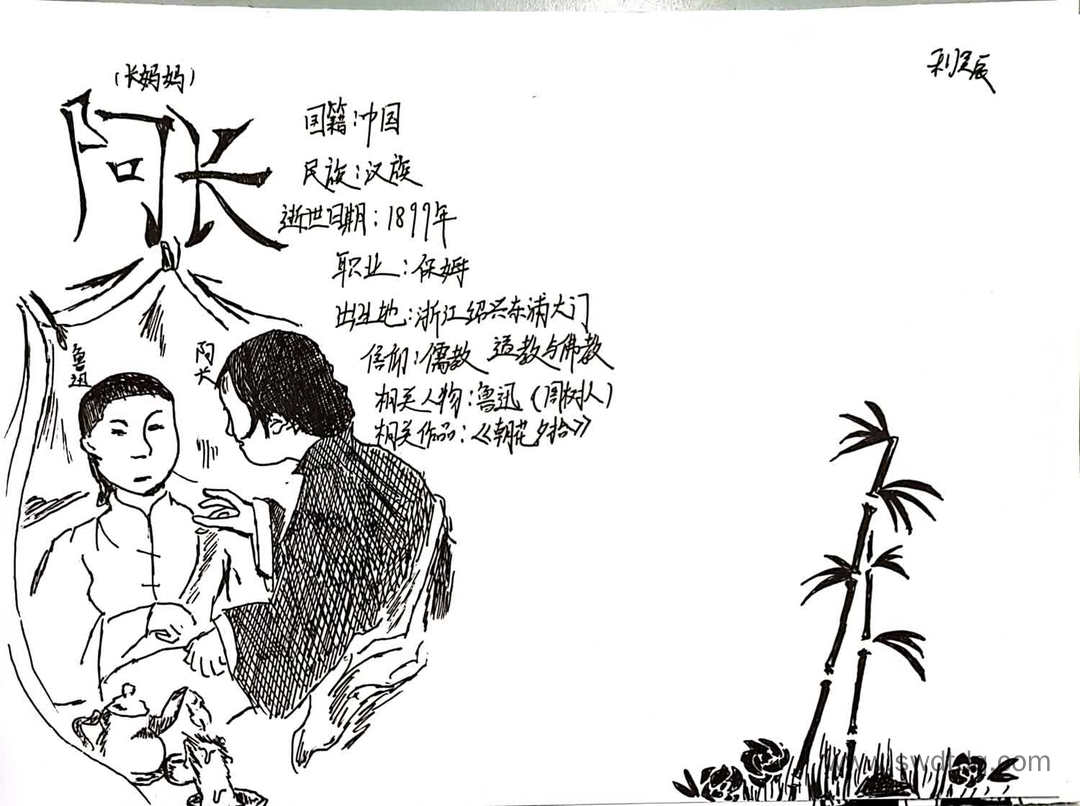 (长妈妈)
阿长
国籍:中国
民族:汉族
逝世日期:1899年
职业:保姆
出生地:浙江绍兴东浦大门
信仰:儒教 道教与佛教
相关人物:鲁迅(周树人)
相关作品:《朝花夕拾》
鲁迅
阿长